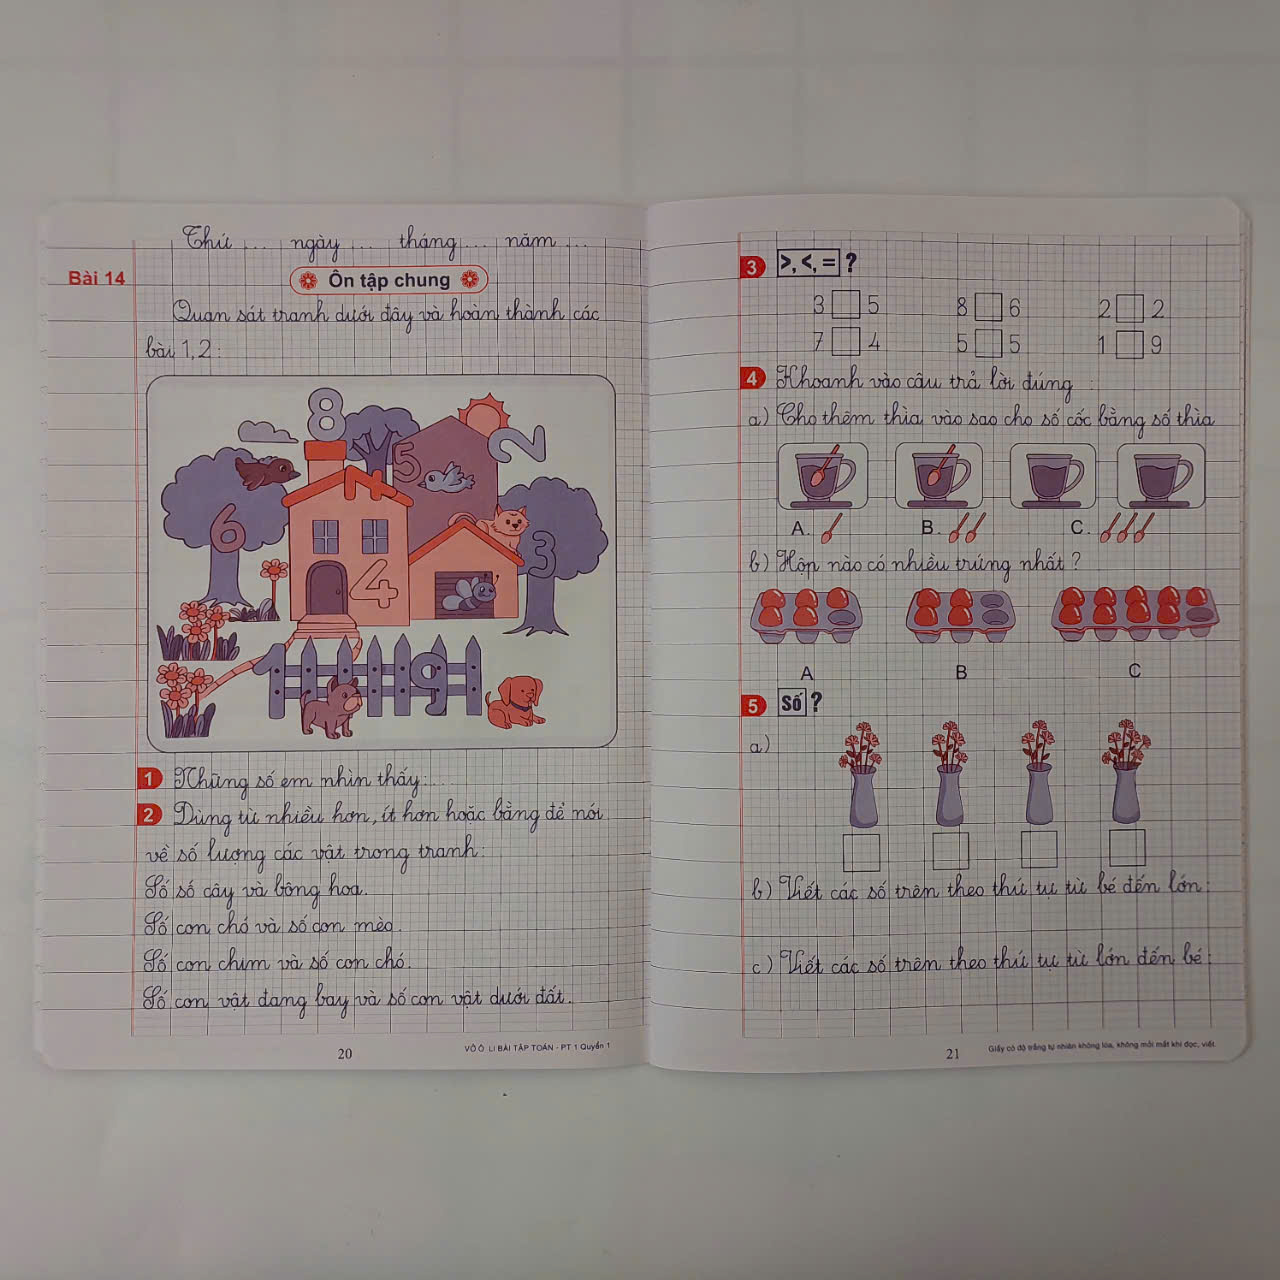 Thứ ... ngày ... tháng ... năm ...
Bài 14
Ôn tập chung
Quan sát tranh dưới đây và hoàn thành các
bài 1, 2 :
8
5
2
7
6
3
4
1
9
1 Những số em nhìn thấy: ...
2 Dùng từ nhiều hơn, ít hơn hoặc bằng để nói
về số lượng các vật trong tranh:
Số số cây và bông hoa.
Số con chó và số con mèo.
Số con chim và số con chó.
Số con vật đang bay và số con vật dưới đất.
20
VỞ Ô LI BÀI TẬP TOÁN - PT 1 Quyển 1
3 >, <, = ?
3 5 8 6 2 2
7 4 5 5 1 9
4 Khoanh vào câu trả lời đúng :
a) Cho thêm thìa vào sao cho số cốc bằng số thìa
A. B. C.
b) Hộp nào có nhiều trứng nhất ?
A B C
5 Số ?
a)
b) Viết các số trên theo thứ tự từ bé đến lớn :
c) Viết các số trên theo thứ tự từ lớn đến bé :
21
Giấy có độ trắng tự nhiên không lóa, không mỏi mắt khi đọc, viết.